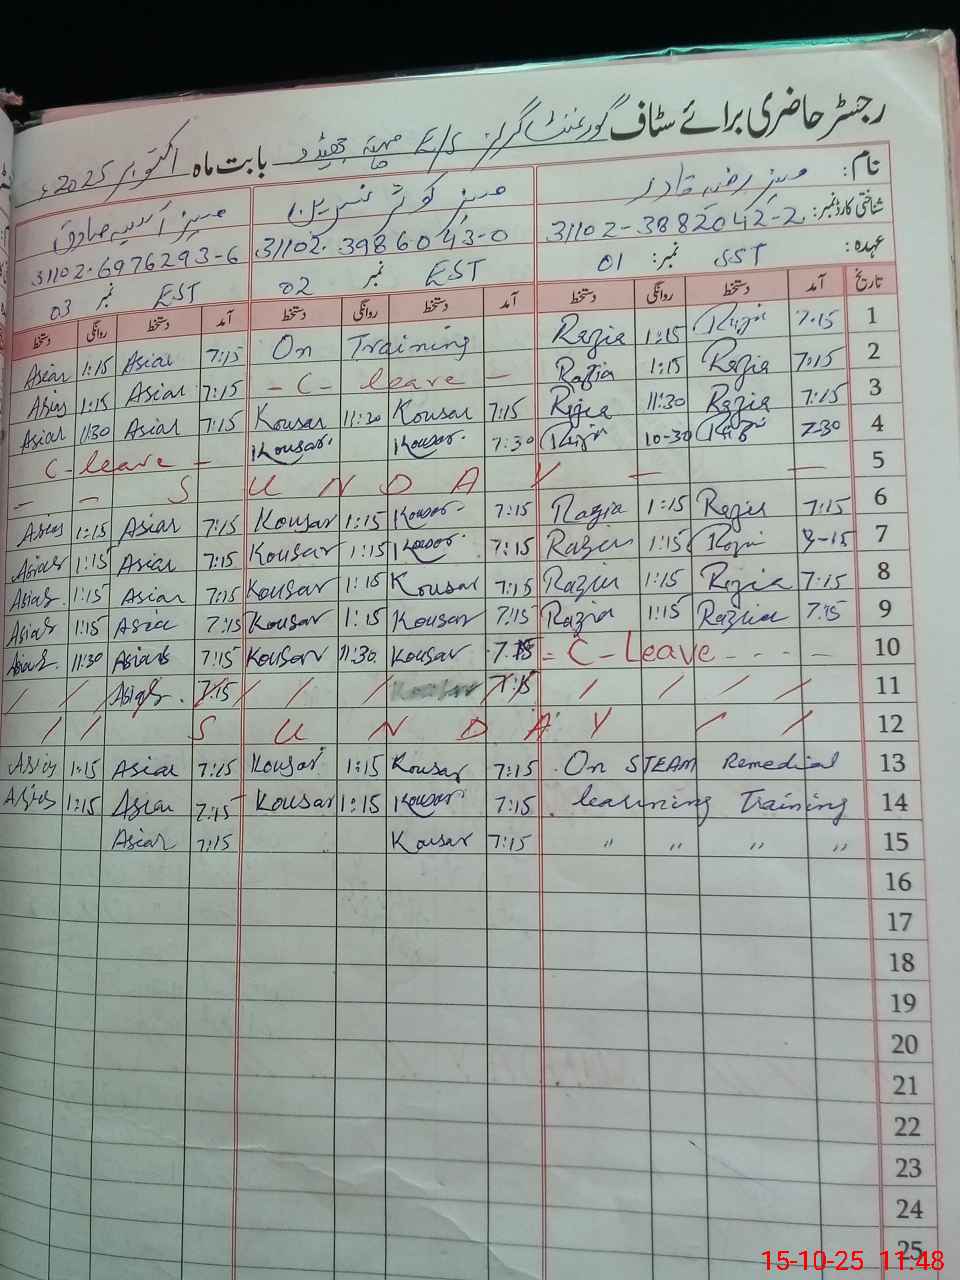 رجسٹر حاضری برائے سٹاف گورنمنٹ گرلز E/S بابت ماہ اکتوبر 2025ء
نام: مسز رضیہ قادر مسز کوثر نسرین مسز آسیہ صادق
شناختی کارڈ نمبر: 31102-3882042-2 31102-3986043-0 31102-6976293-6
عہدہ: SST نمبر: 01 EST نمبر 02 EST نمبر 03
تاریخ آمد دستخط روانگی دستخط آمد دستخط روانگی دستخط آمد دستخط روانگی دستخط
Asiar 1:15 Asiar 7:15 On Training Razia 1:15 7:15 1
Asias 1:15 Asiar 7:15 - C - leave - Razia 1:15 Razia 7:15 2
Asiar 11:30 Asiar 7:15 Kousar 11:30 Kousar 7:15 Razia 11:30 Razia 7:15 3
C - leave - Kousar. Kousar. 7:30 10-30 7-30 4
- - S U N D A Y - - 5
Asias 1:15 Asiar 7:15 Kousar 1:15 Kousar. 7:15 Razia 1:15 Razia 7:15 6
Asias 1:15 Asiar 7:15 Kousar 1:15 Kousar. 7:15 Razia 1:15 7
Asias. 1:15 Asiar 7:15 Kousar 1:15 Kousar 7:15 Razia 1:15 Razia 7:15 8
Asias 1:15 Asia 7:15 Kousar 1:15 Kousar 7:15 Razia 1:15 Razia 7:15 9
Asias. 11:30 Asias 7:15 Kousar 11:30. Kousar 7:15 = C - Leave - - - - 10
/ / Asias. 7:15 / / / Kousar 7:15 / / / / 11
/ / S U N D A Y / / 12
Asias 1:15 Asiar 7:15 Kousar 1:15 Kousar 7:15 On STEAM Remedial 13
Asias 1:15 Asiar 7:15 Kousar 1:15 Kousar 7:15 learning Training 14
Asiar 7:15 Kousar 7:15 〃 〃 〃 〃 15
16
17
18
19
20
21
22
23
24
25
15-10-25 11:48